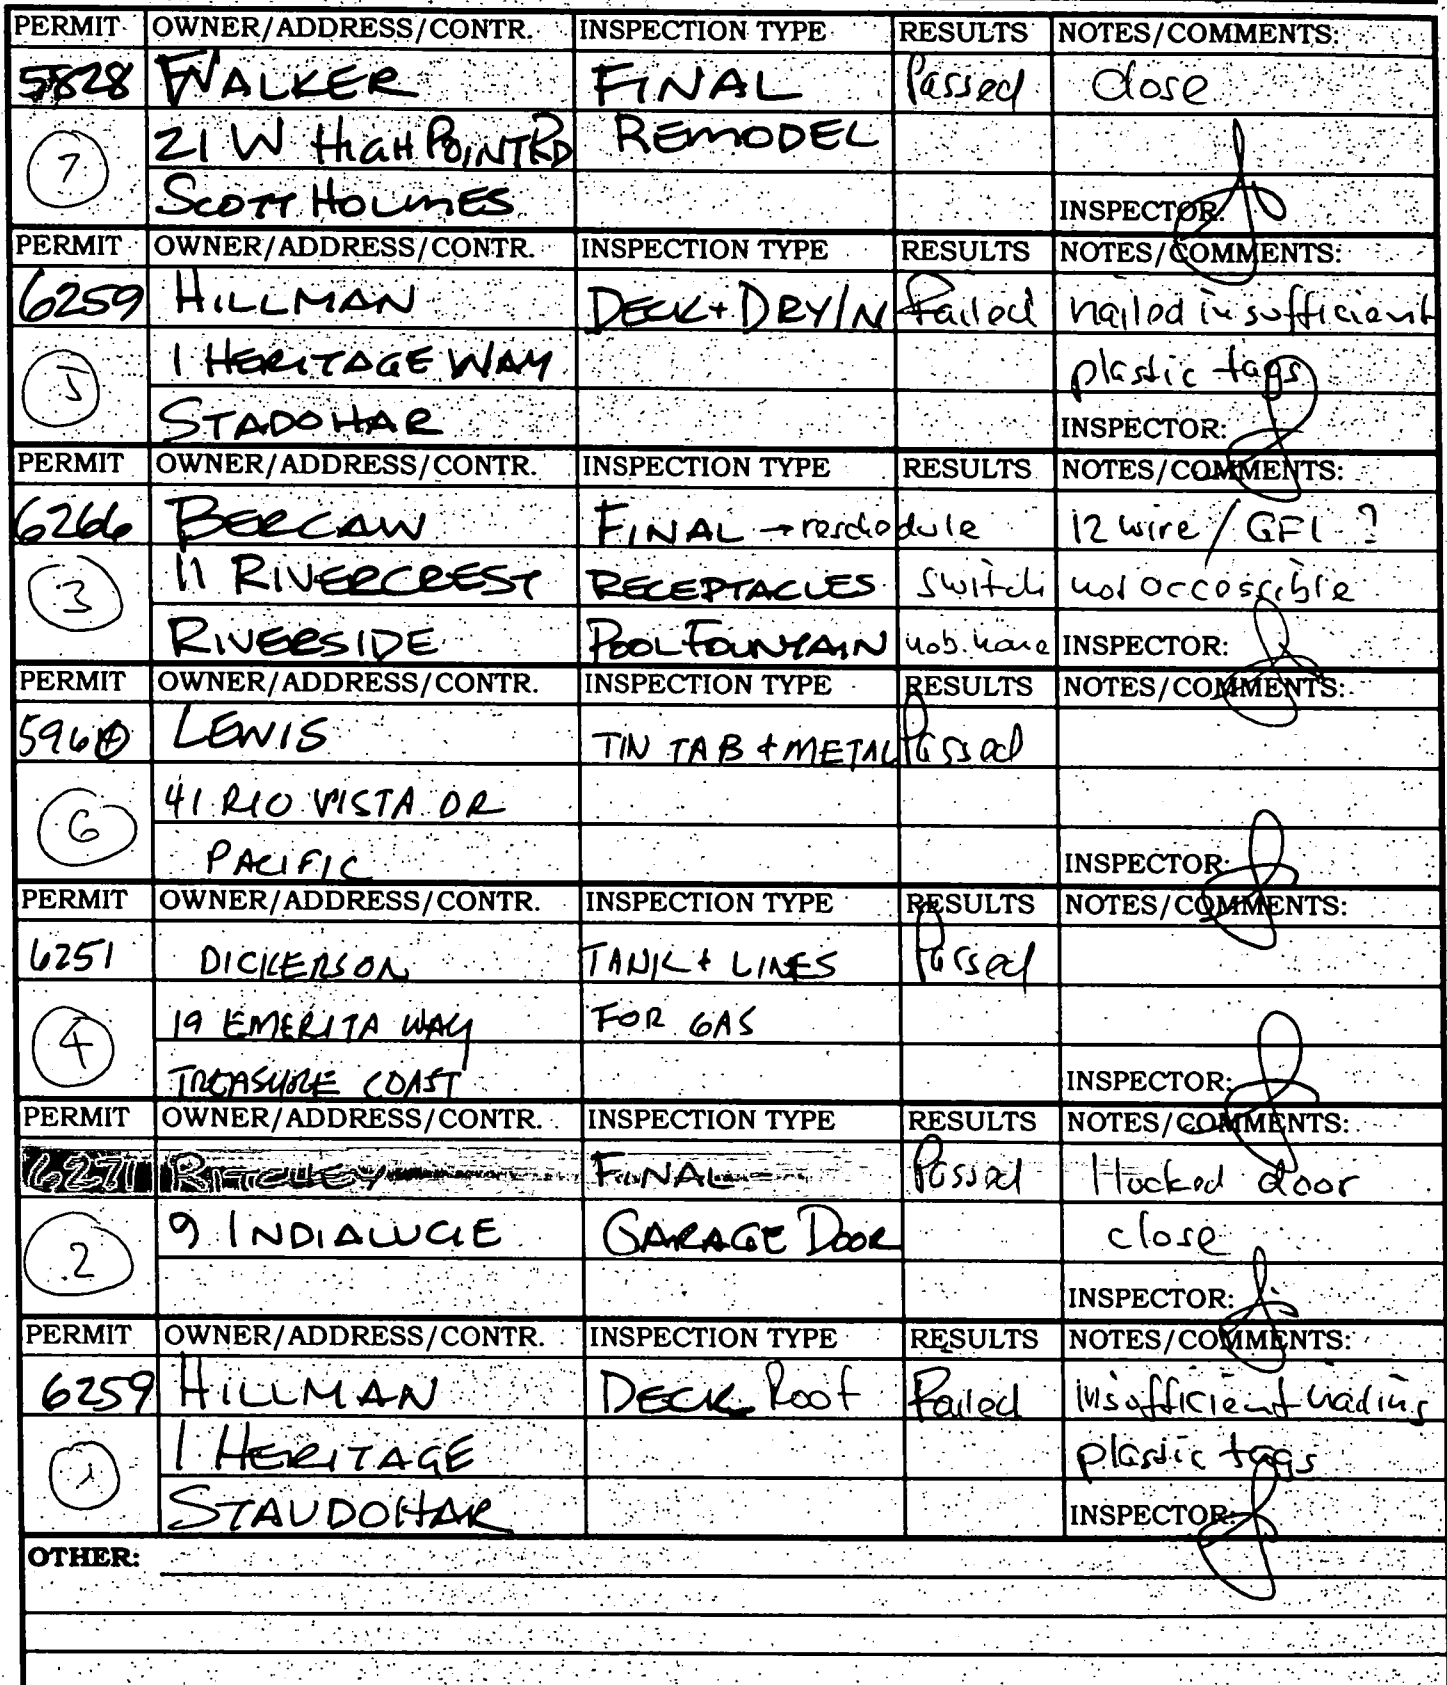 PERMIT OWNER/ADDRESS/CONTR. INSPECTION TYPE RESULTS NOTES/COMMENTS:
5828 WALKER FINAL Passed Close
7 21 W HIGH POINT RD REMODEL
SCOTT HOLMES INSPECTOR:
PERMIT OWNER/ADDRESS/CONTR. INSPECTION TYPE RESULTS NOTES/COMMENTS:
6259 HILLMAN DECK + DRY/IN Failed nailed insufficient
5 1 HERITAGE WAY plastic tags
STADOHAR INSPECTOR:
PERMIT OWNER/ADDRESS/CONTR. INSPECTION TYPE RESULTS NOTES/COMMENTS:
6266 BERCAW FINAL → reschedule 12 wire / GFI ?
3 11 RIVERCREST RECEPTACLES switch not accessible
RIVERSIDE POOL FOUNTAIN INSPECTOR:
PERMIT OWNER/ADDRESS/CONTR. INSPECTION TYPE RESULTS NOTES/COMMENTS:
LEWIS TIN TAB + METAL Passed
6 41 RIO VISTA DR
PACIFIC INSPECTOR:
PERMIT OWNER/ADDRESS/CONTR. INSPECTION TYPE RESULTS NOTES/COMMENTS:
6251 DICKERSON TANK + LINES Passed
4 19 EMERITA WAY FOR GAS
TREASURE COAST INSPECTOR:
PERMIT OWNER/ADDRESS/CONTR. INSPECTION TYPE RESULTS NOTES/COMMENTS:
6271 FINAL Passed door
2 9 INDIALUCIE GARAGE DOOR close
INSPECTOR:
PERMIT OWNER/ADDRESS/CONTR. INSPECTION TYPE RESULTS NOTES/COMMENTS:
6259 HILLMAN DECK Roof Failed insufficient nailing
1 1 HERITAGE plastic tags
STAUDOHAR INSPECTOR:
OTHER: